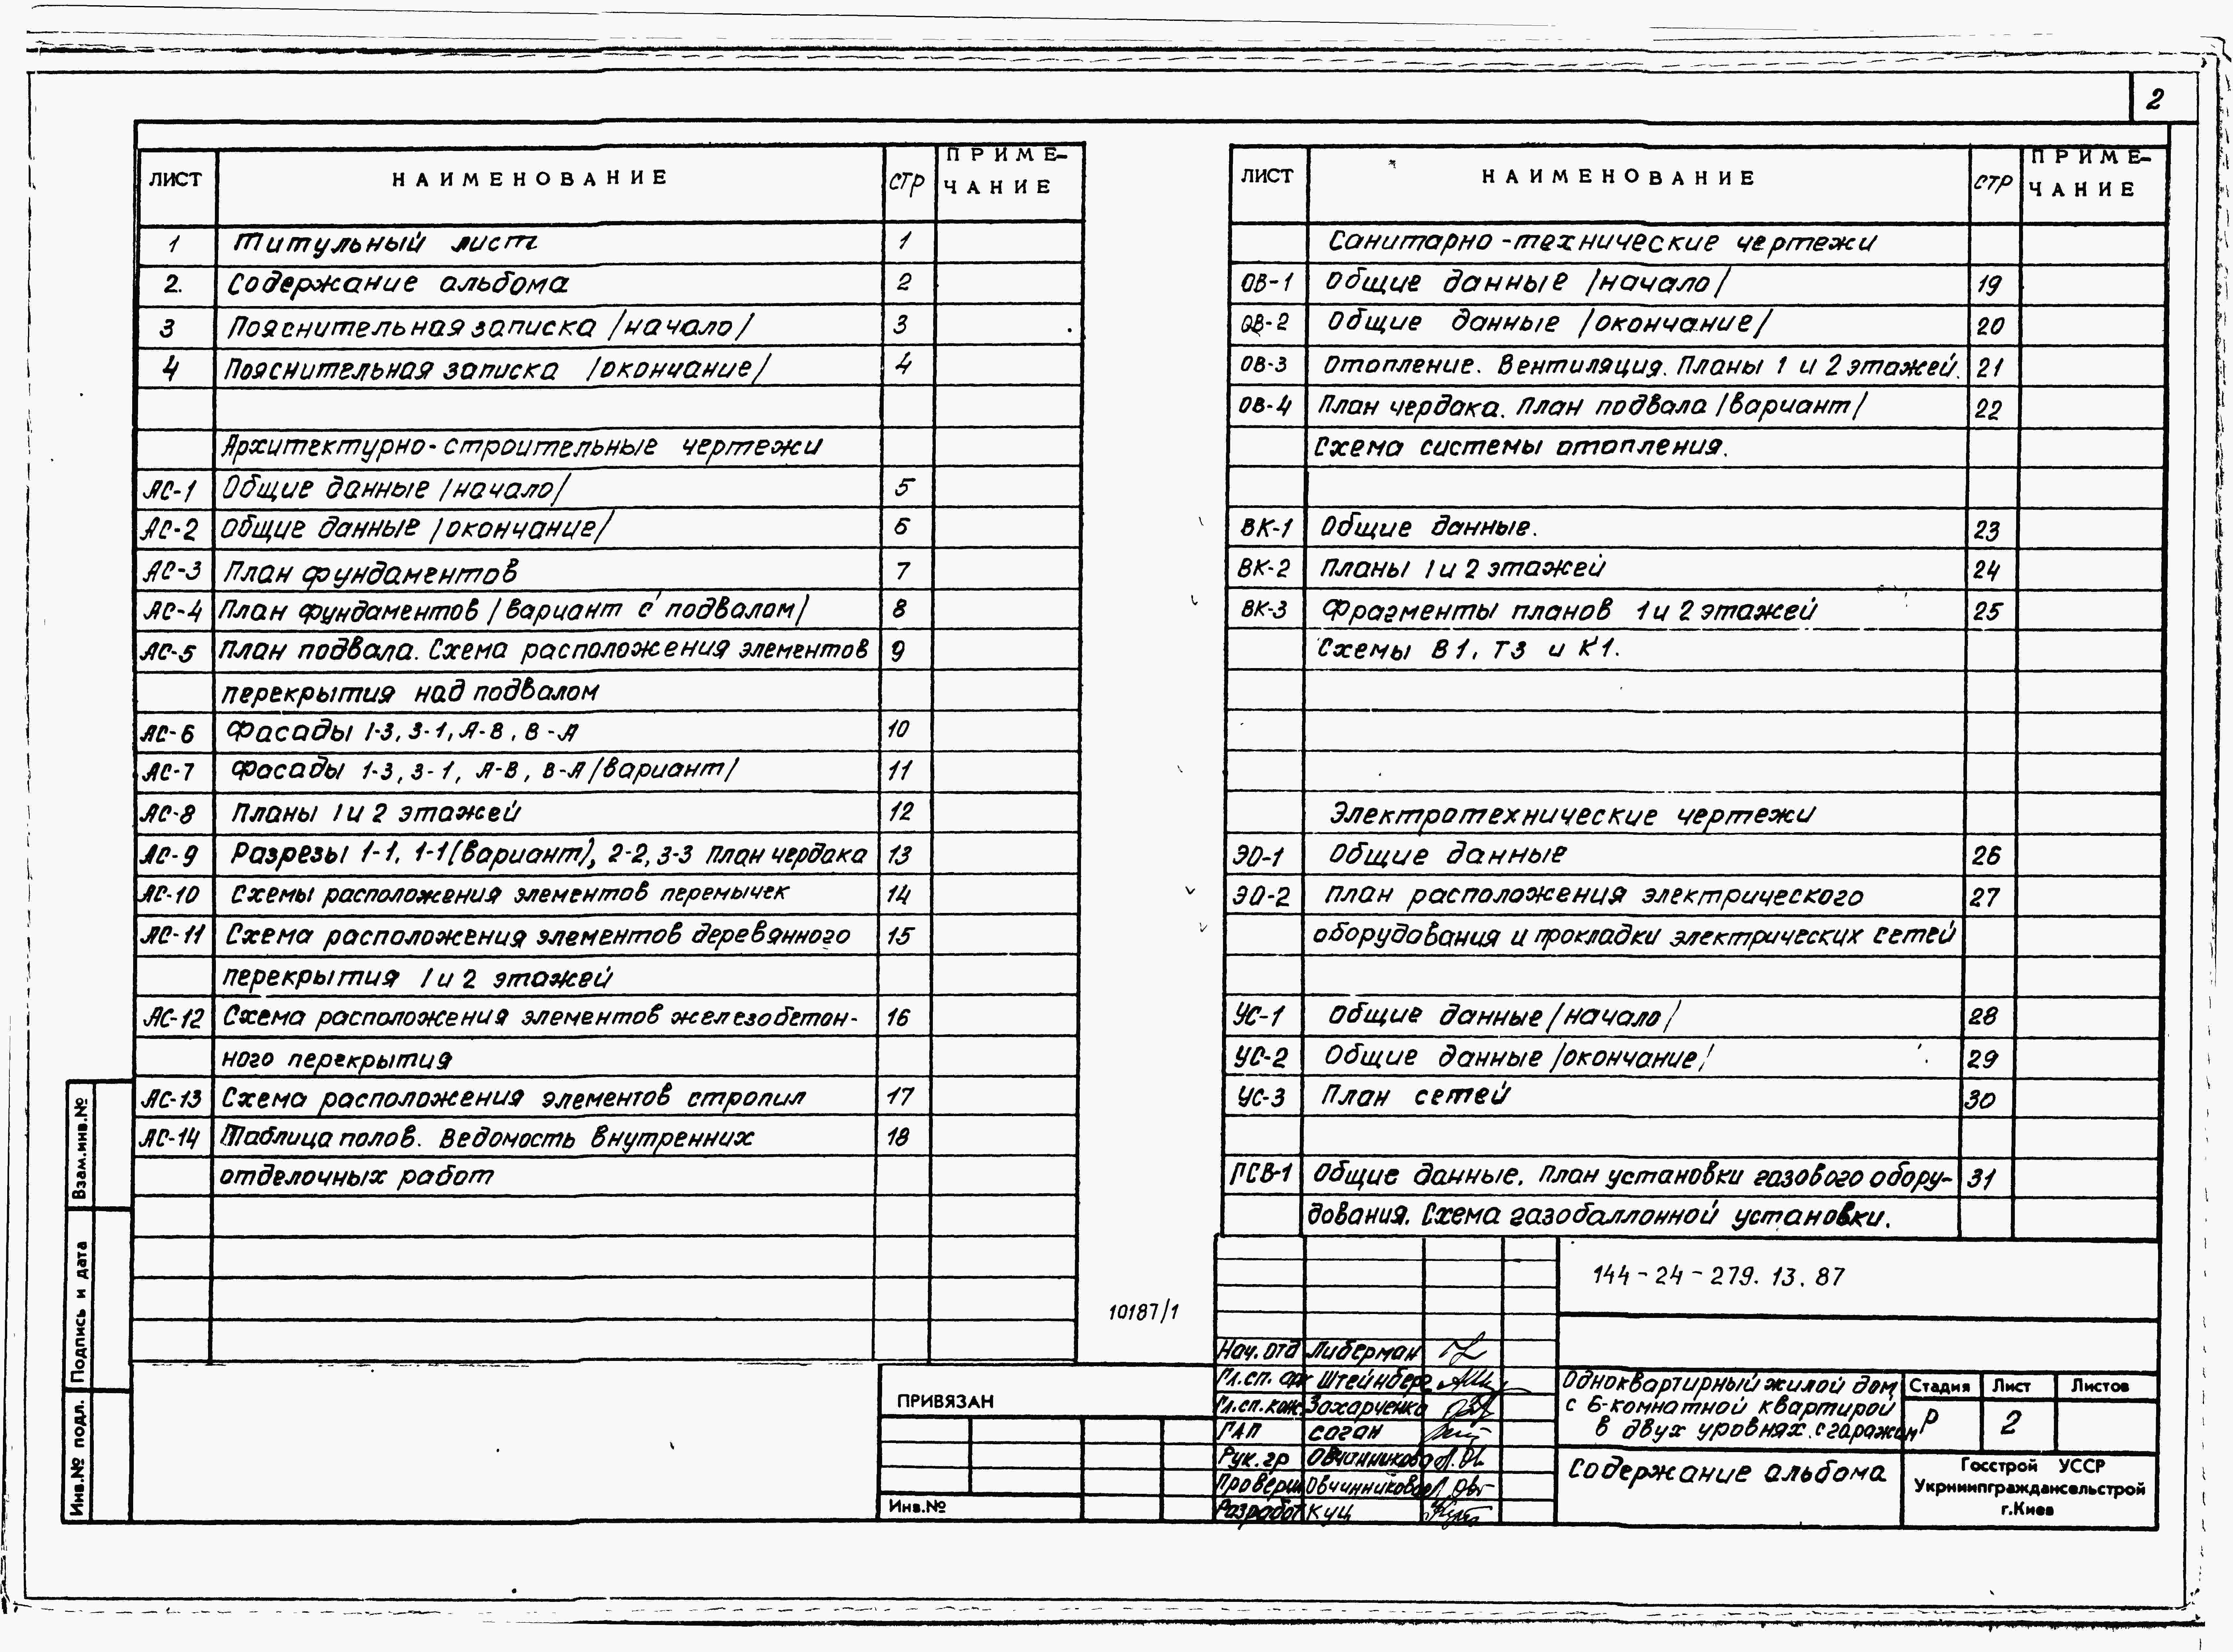 2
ЛИСТ НАИМЕНОВАНИЕ СТР ПРИМЕ-
ЧАНИЕ
1 Титульный лист 1
2. Содержание альбома 2
3 Пояснительная записка /начало/ 3
4 Пояснительная записка /окончание/ 4
Архитектурно-строительные чертежи
АС-1 Общие данные /начало/ 5
АС-2 Общие данные /окончание/ 6
АС-3 План фундаментов 7
АС-4 План фундаментов /вариант с подвалом/ 8
АС-5 План подвала. Схема расположения элементов 9
перекрытия над подвалом
АС-6 Фасады 1-3, 3-1, А-В, В-А 10
АС-7 Фасады 1-3, 3-1, А-В, В-А /вариант/ 11
АС-8 Планы 1 и 2 этажей 12
АС-9 Разрезы 1-1, 1-1(вариант), 2-2, 3-3 План чердака 13
АС-10 Схемы расположения элементов перемычек 14
АС-11 Схема расположения элементов деревянного 15
перекрытия 1 и 2 этажей
АС-12 Схема расположения элементов железобетон- 16
ного перекрытия
АС-13 Схема расположения элементов стропил 17
АС-14 Таблица полов. Ведомость внутренних 18
отделочных работ
ЛИСТ НАИМЕНОВАНИЕ СТР ПРИМЕ-
ЧАНИЕ
Санитарно-технические чертежи
ОВ-1 Общие данные /начало/ 19
ОВ-2 Общие данные /окончание/ 20
ОВ-3 Отопление. Вентиляция. Планы 1 и 2 этажей. 21
ОВ-4 План чердака. План подвала /вариант/ 22
Схема системы отопления.
ВК-1 Общие данные. 23
ВК-2 Планы 1 и 2 этажей 24
ВК-3 Фрагменты планов 1 и 2 этажей 25
Схемы В1, Т3 и К1.
Электротехнические чертежи
ЭО-1 Общие данные 26
ЭО-2 План расположения электрического 27
оборудования и прокладки электрических сетей
УС-1 Общие данные /начало/ 28
УС-2 Общие данные /окончание/ 29
УС-3 План сетей 30
ГСВ-1 Общие данные. План установки газового обору- 31
дования. Схема газобаллонной установки.
10187/1
144-24-279.13.87
Нач. отд Либерман
Гл.сп. арх Штейнберг
Гл.сп.кон. Захарченко
ГАП Саган
Рук. гр Овчинникова
Проверил Овчинникова
Разработ Куц
Одноквартирный жилой дом
с 6-комнатной квартирой
в двух уровнях с гаражом
Стадия Лист Листов
Р 2
Содержание альбома
Госстрой УССР
Укрниипграждансельстрой
г.Киев
ПРИВЯЗАН
Инв.№
Взам.инв.№
Подпись и дата
Инв.№ подл.